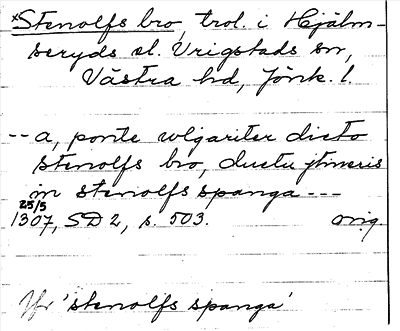 *Stenolfs bro, trol. i Hjälm-
seryds el. Vrigstads sn,
Västra hd, Jönk. l.
-- a, ponte wlgariter dicto
stenolfs bro, ductu ytineris
in stenolfs spanga ---
25/5
1307, SD 2, s. 503. orig.
Jfr 'stenolfs spanga'